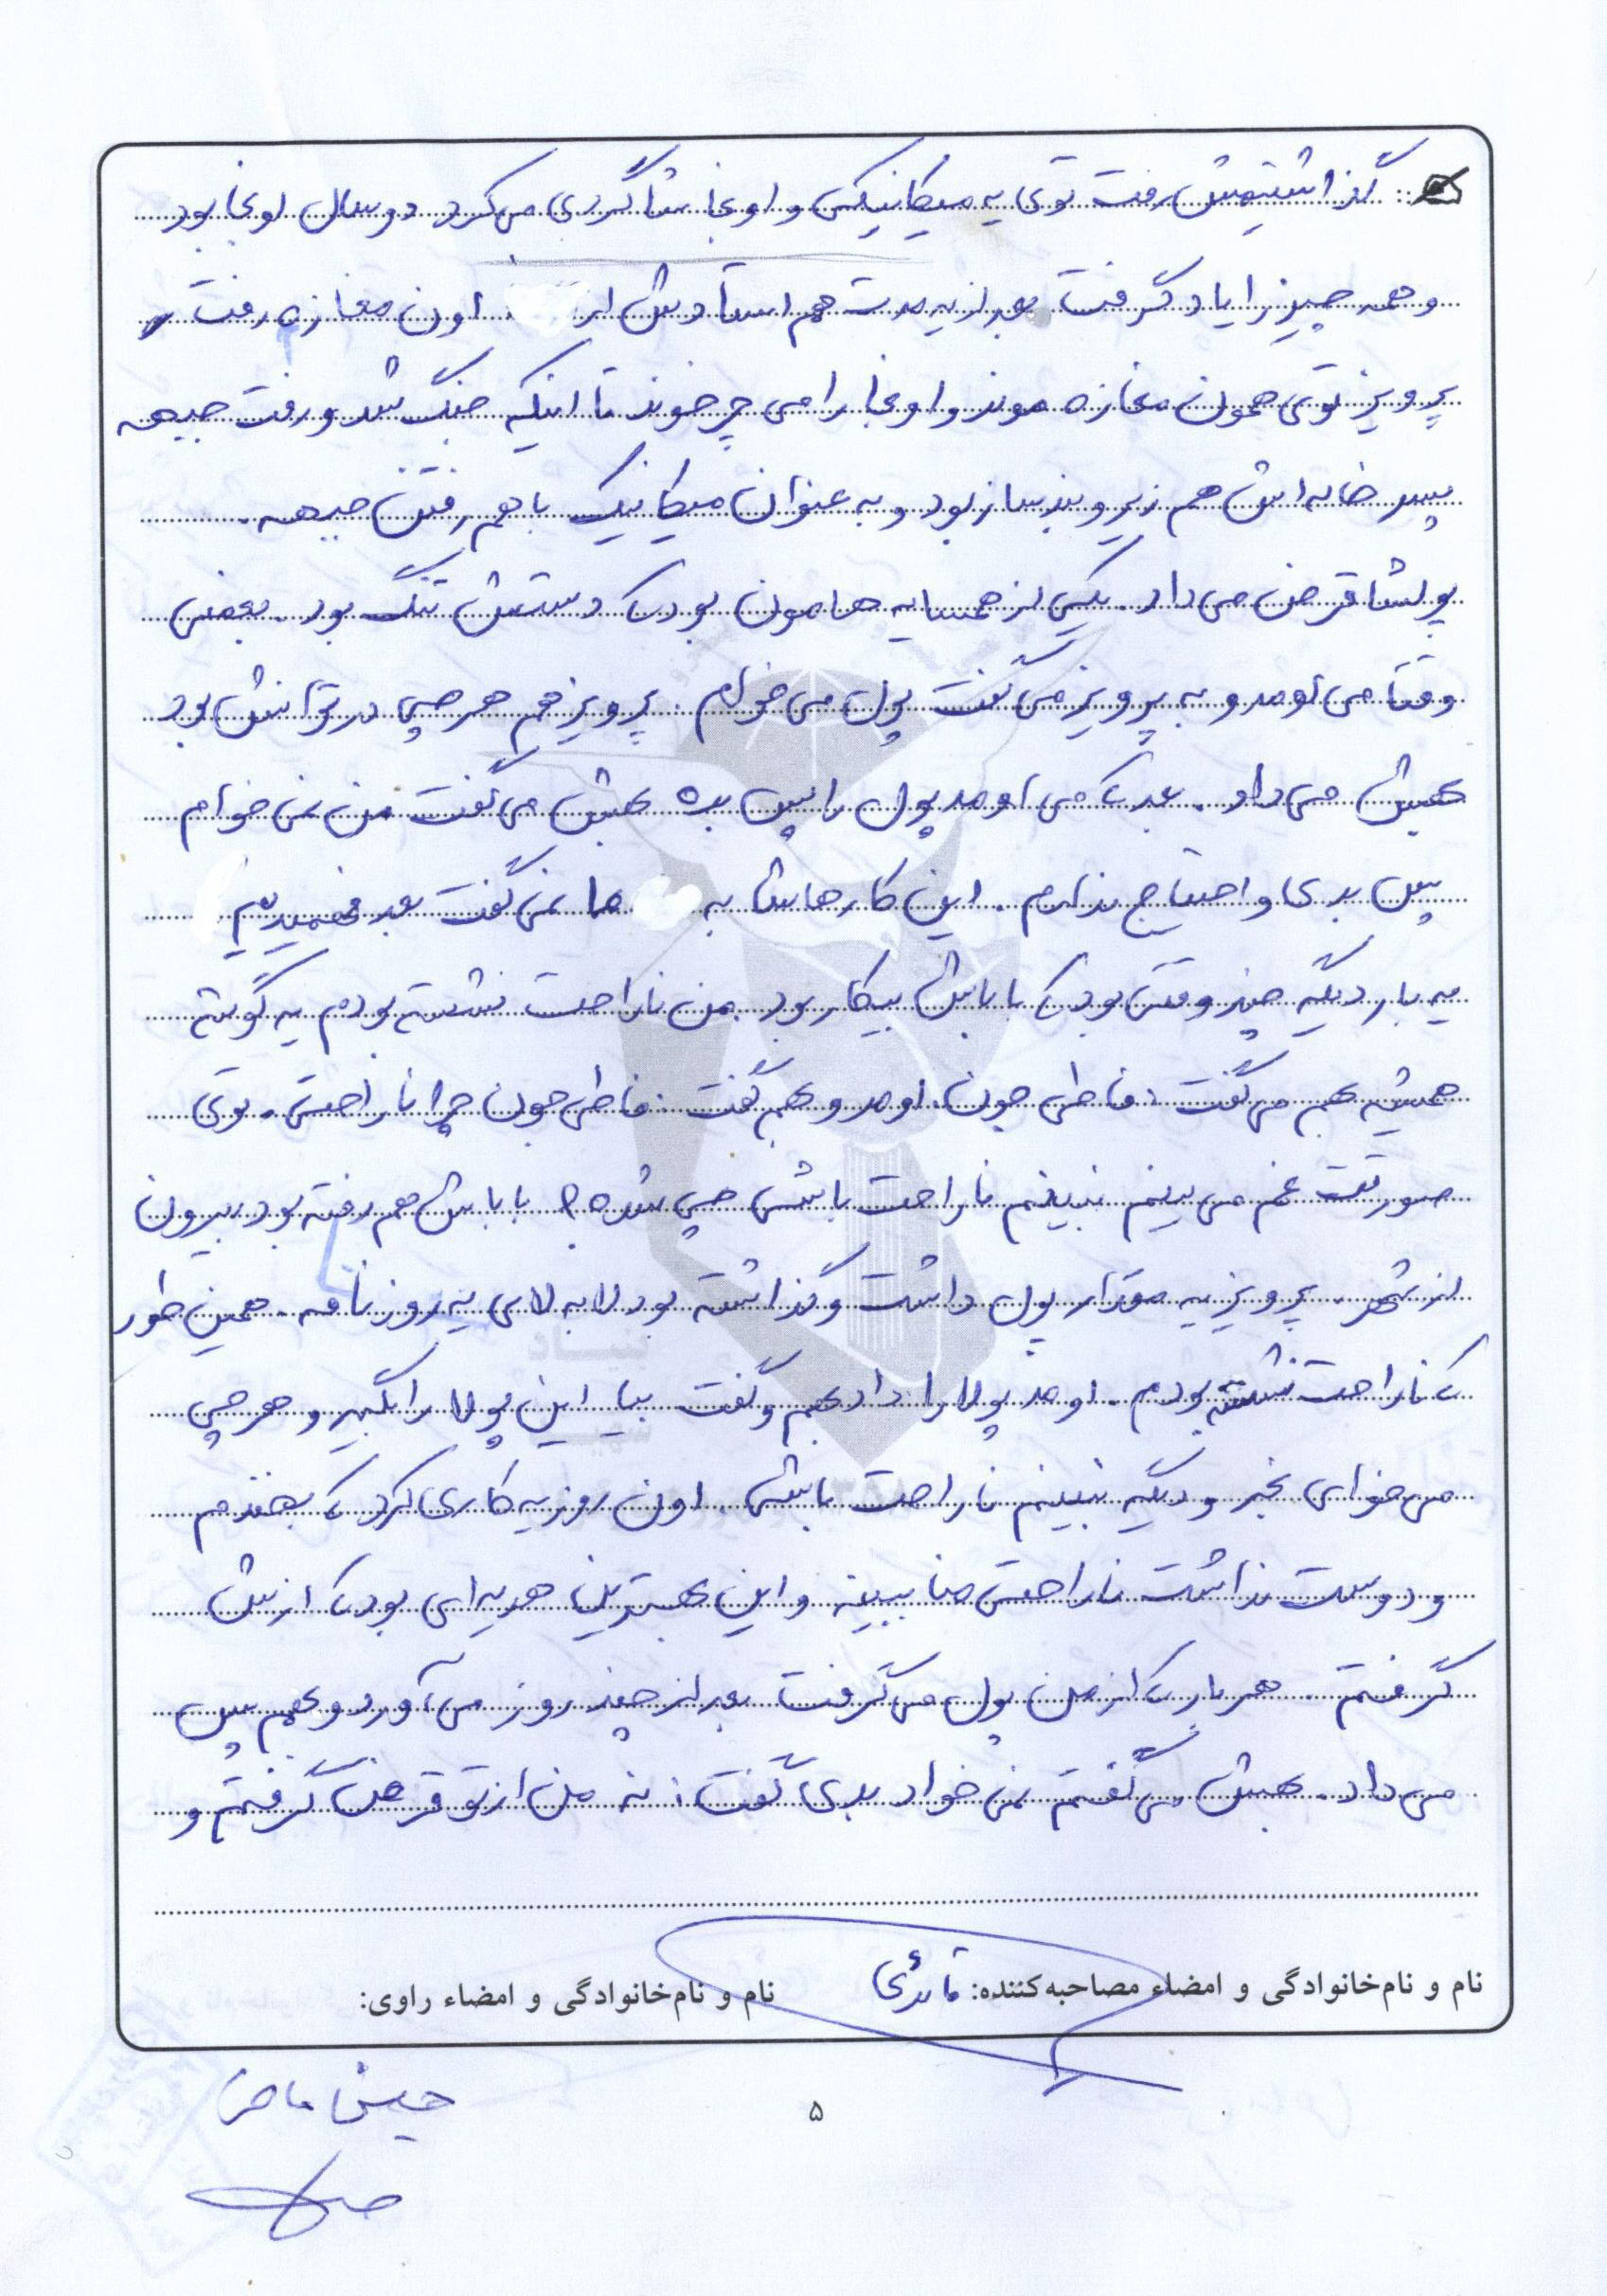 گذاشتیمش رفت توی یه میکانیکی و اونجا شاگردی می‌کرد دو سال اونجا بود
و همه چیز را یاد گرفت بعد از یه مدت هم استادش از اون مغازه رفت و
پرویز توی همون مغازه موند و اونجا را می چرخوند تا اینکه جنگ شد و رفت جبهه
پسر خاله‌اش هم زیر و بند ساز بود و به عنوان میکانیک با هم رفتن جبهه.
پولشا قرض می‌داد. یکی از همسایه هامون بود که دستش تنگ بود. بعضی
وقتا می اومد و به پرویز می گفت پول می خوام. پرویز هم هر چی در توانش بود
بهش می داد. بعد که می اومد پول را پس بده بهش می گفت من نمی خوام
پس بدی و احتیاج ندارم. این کارهاشا به ما نمی گفت بعد فهمیدیم
یه بار دیگه چند وقتی بود که باباش بیکار بود. من ناراحت نشسته بودم یه گوشه
همیشه بهم می گفت: فاطی جون. اومد و بهم گفت: فاطی جون چرا ناراحتی. توی
صورتت غم می بینم نبینم ناراحت باشی چی شده؟ باباش هم رفته بود بیرون
از شهر. پرویز یه مقدار پول داشت و گذاشته بود لابه لای یه روزنامه. همین طور
که ناراحت نشسته بودم. اومد پولا را داد بهم و گفت بیا این پولا را بگیر و هر چی
می خوای بخر و دیگه نبینم ناراحت باشی. اون روز یه کاری کرد که بخندم
و دوست نداشت ناراحتی منا ببینه و این بهترین هدیه‌ای بود که ازش
گرفتم. هر بار که از من پول می گرفت بعد از چند روز می آورد و بهم پس
می داد. بهش می گفتم نمی خواد بدی گفت: نه من از تو قرض گرفتم و
نام و نام‌خانوادگی و امضاء مصاحبه‌کننده: قائدی نام و نام‌خانوادگی و امضاء راوی:
۵